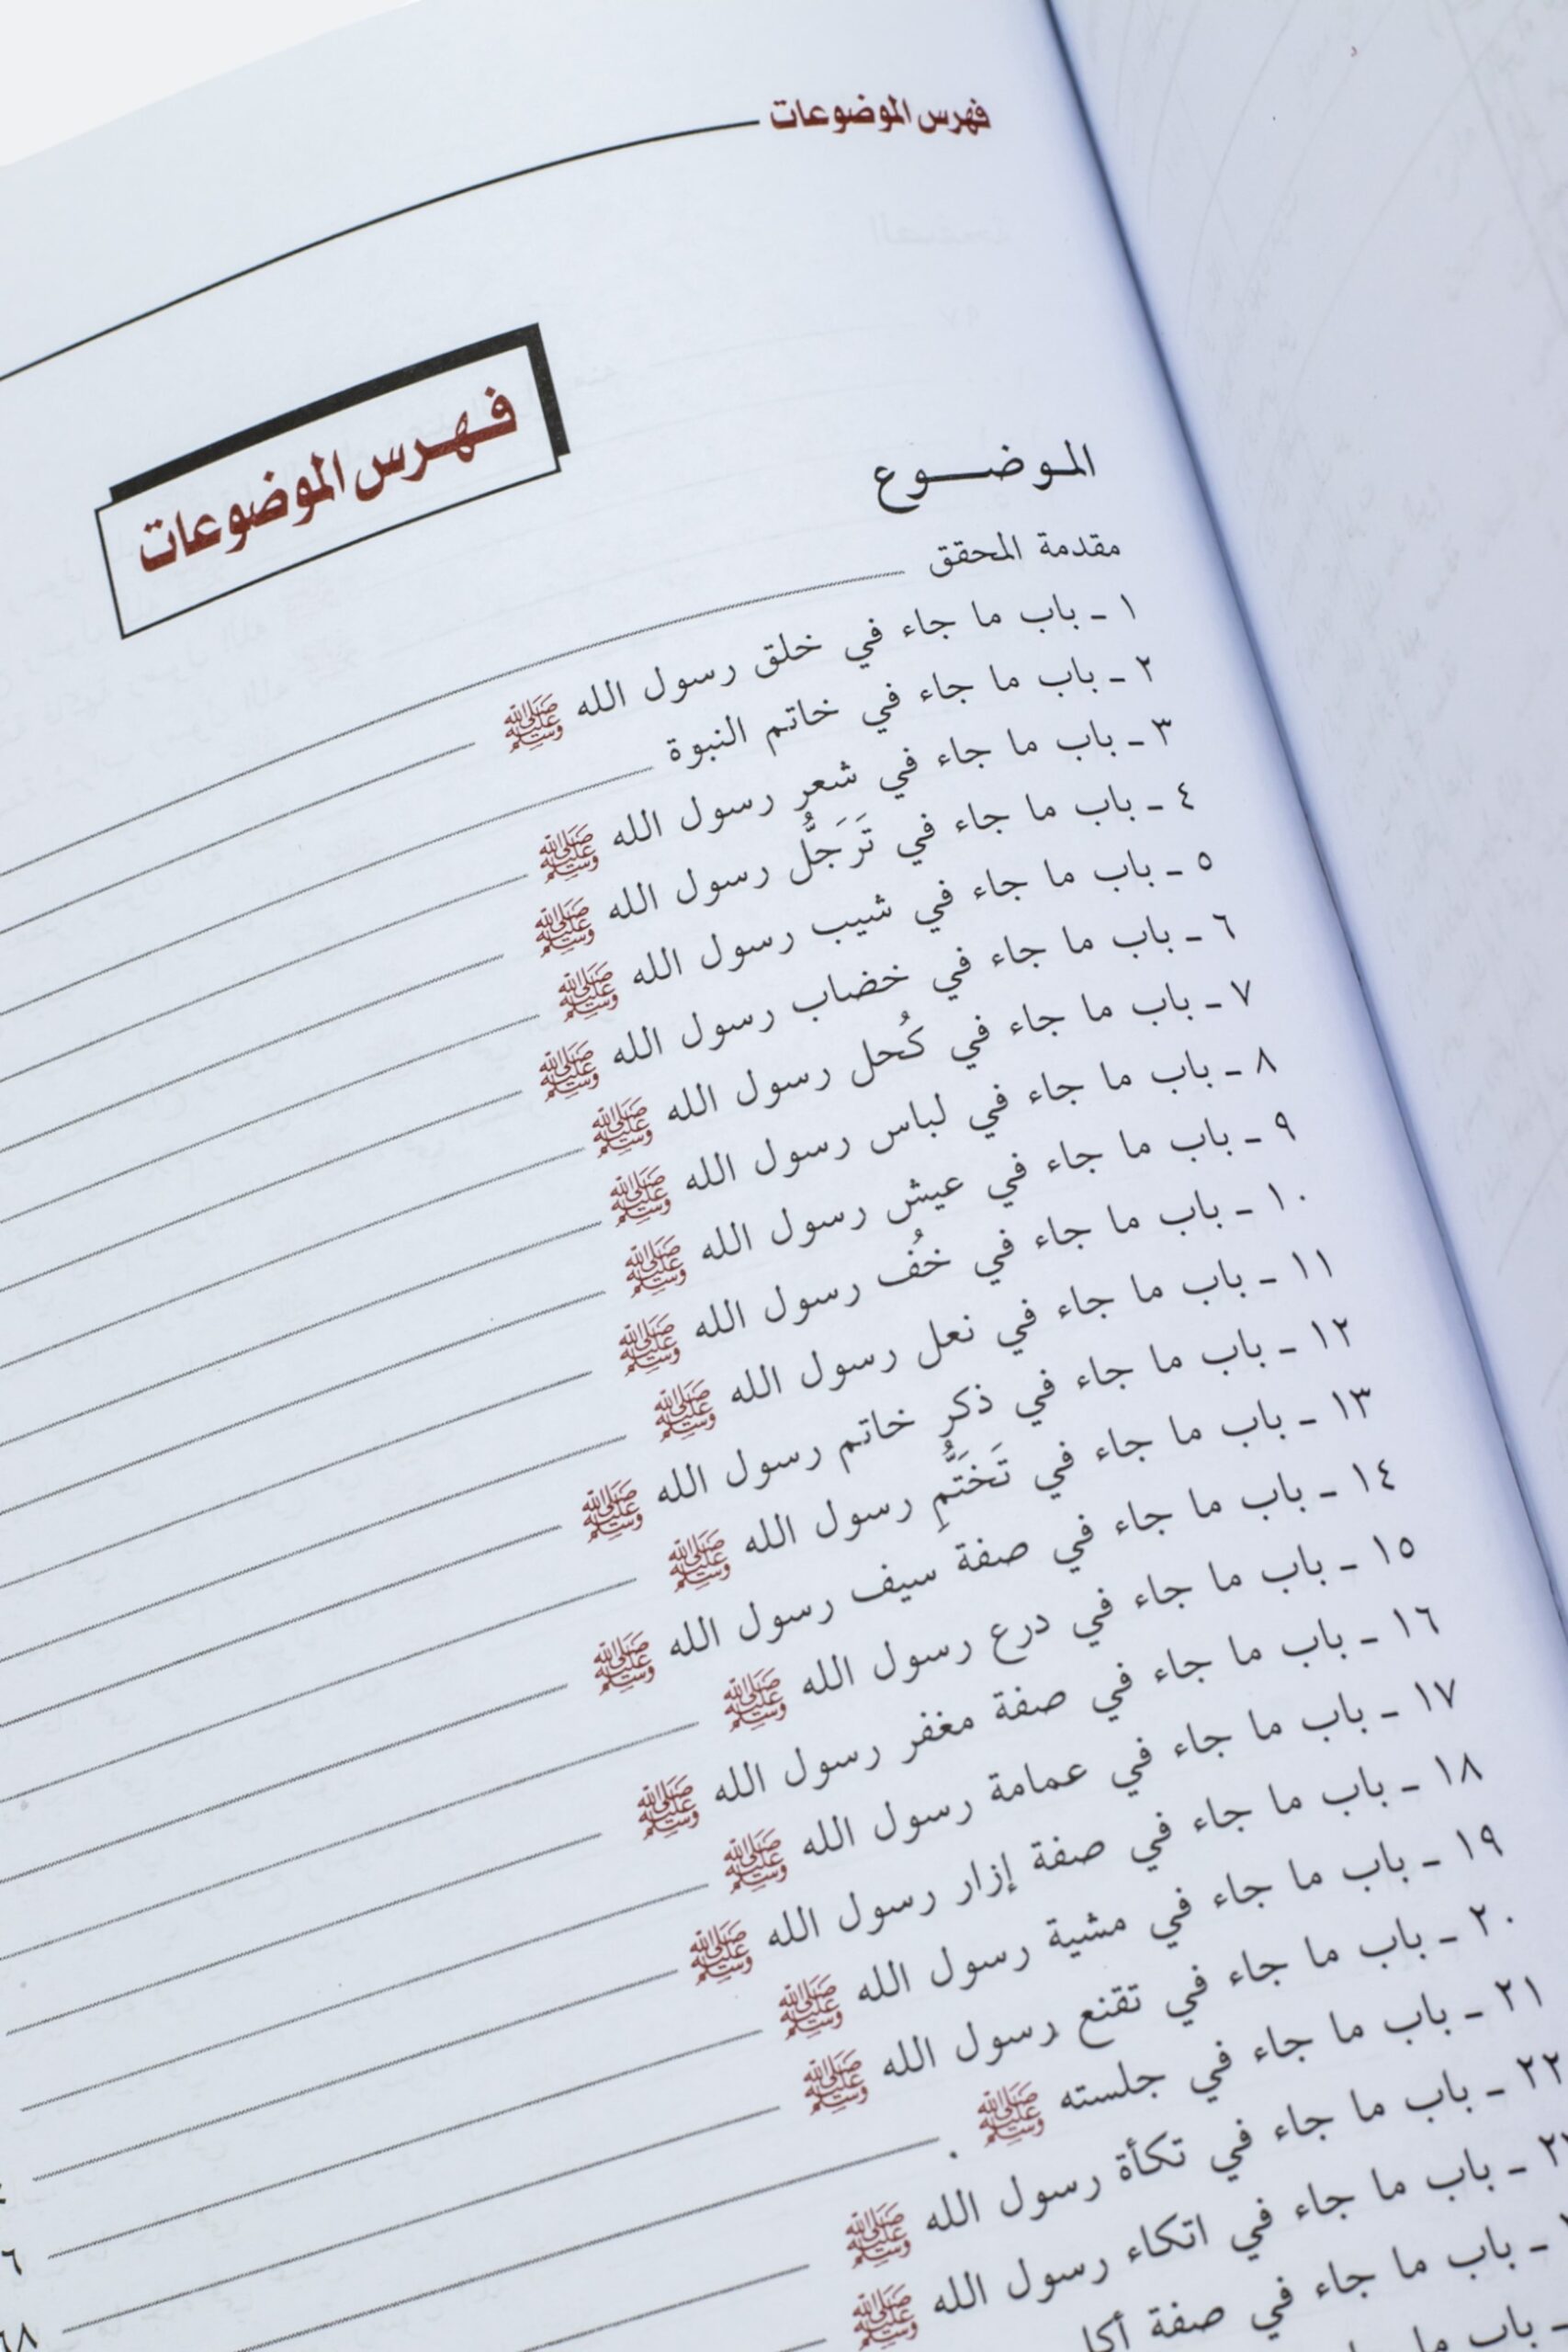 فهرس الموضوعات
فهرس الموضوعات
الموضوع
مقدمة المحقق
١ - باب ما جاء في خلق رسول الله ﷺ
٢ - باب ما جاء في خاتم النبوة
٣ - باب ما جاء في شعر رسول الله ﷺ
٤ - باب ما جاء في تَرَجُّل رسول الله ﷺ
٥ - باب ما جاء في شيب رسول الله ﷺ
٦ - باب ما جاء في خضاب رسول الله ﷺ
٧ - باب ما جاء في كُحل رسول الله ﷺ
٨ - باب ما جاء في لباس رسول الله ﷺ
٩ - باب ما جاء في عيش رسول الله ﷺ
١٠ - باب ما جاء في خُف رسول الله ﷺ
١١ - باب ما جاء في نعل رسول الله ﷺ
١٢ - باب ما جاء في ذكر خاتم رسول الله ﷺ
١٣ - باب ما جاء في تَخَتُّمِ رسول الله ﷺ
١٤ - باب ما جاء في صفة سيف رسول الله ﷺ
١٥ - باب ما جاء في درع رسول الله ﷺ
١٦ - باب ما جاء في صفة مغفر رسول الله ﷺ
١٧ - باب ما جاء في عمامة رسول الله ﷺ
١٨ - باب ما جاء في صفة إزار رسول الله ﷺ
١٩ - باب ما جاء في مشية رسول الله ﷺ
٢٠ - باب ما جاء في تقنع رسول الله ﷺ
٢١ - باب ما جاء في جلسته ﷺ .
٢٢ - باب ما جاء في تكأة رسول الله ﷺ
- باب ما جاء في اتكاء رسول الله ﷺ
- باب ما جاء في صفة
- باب ما